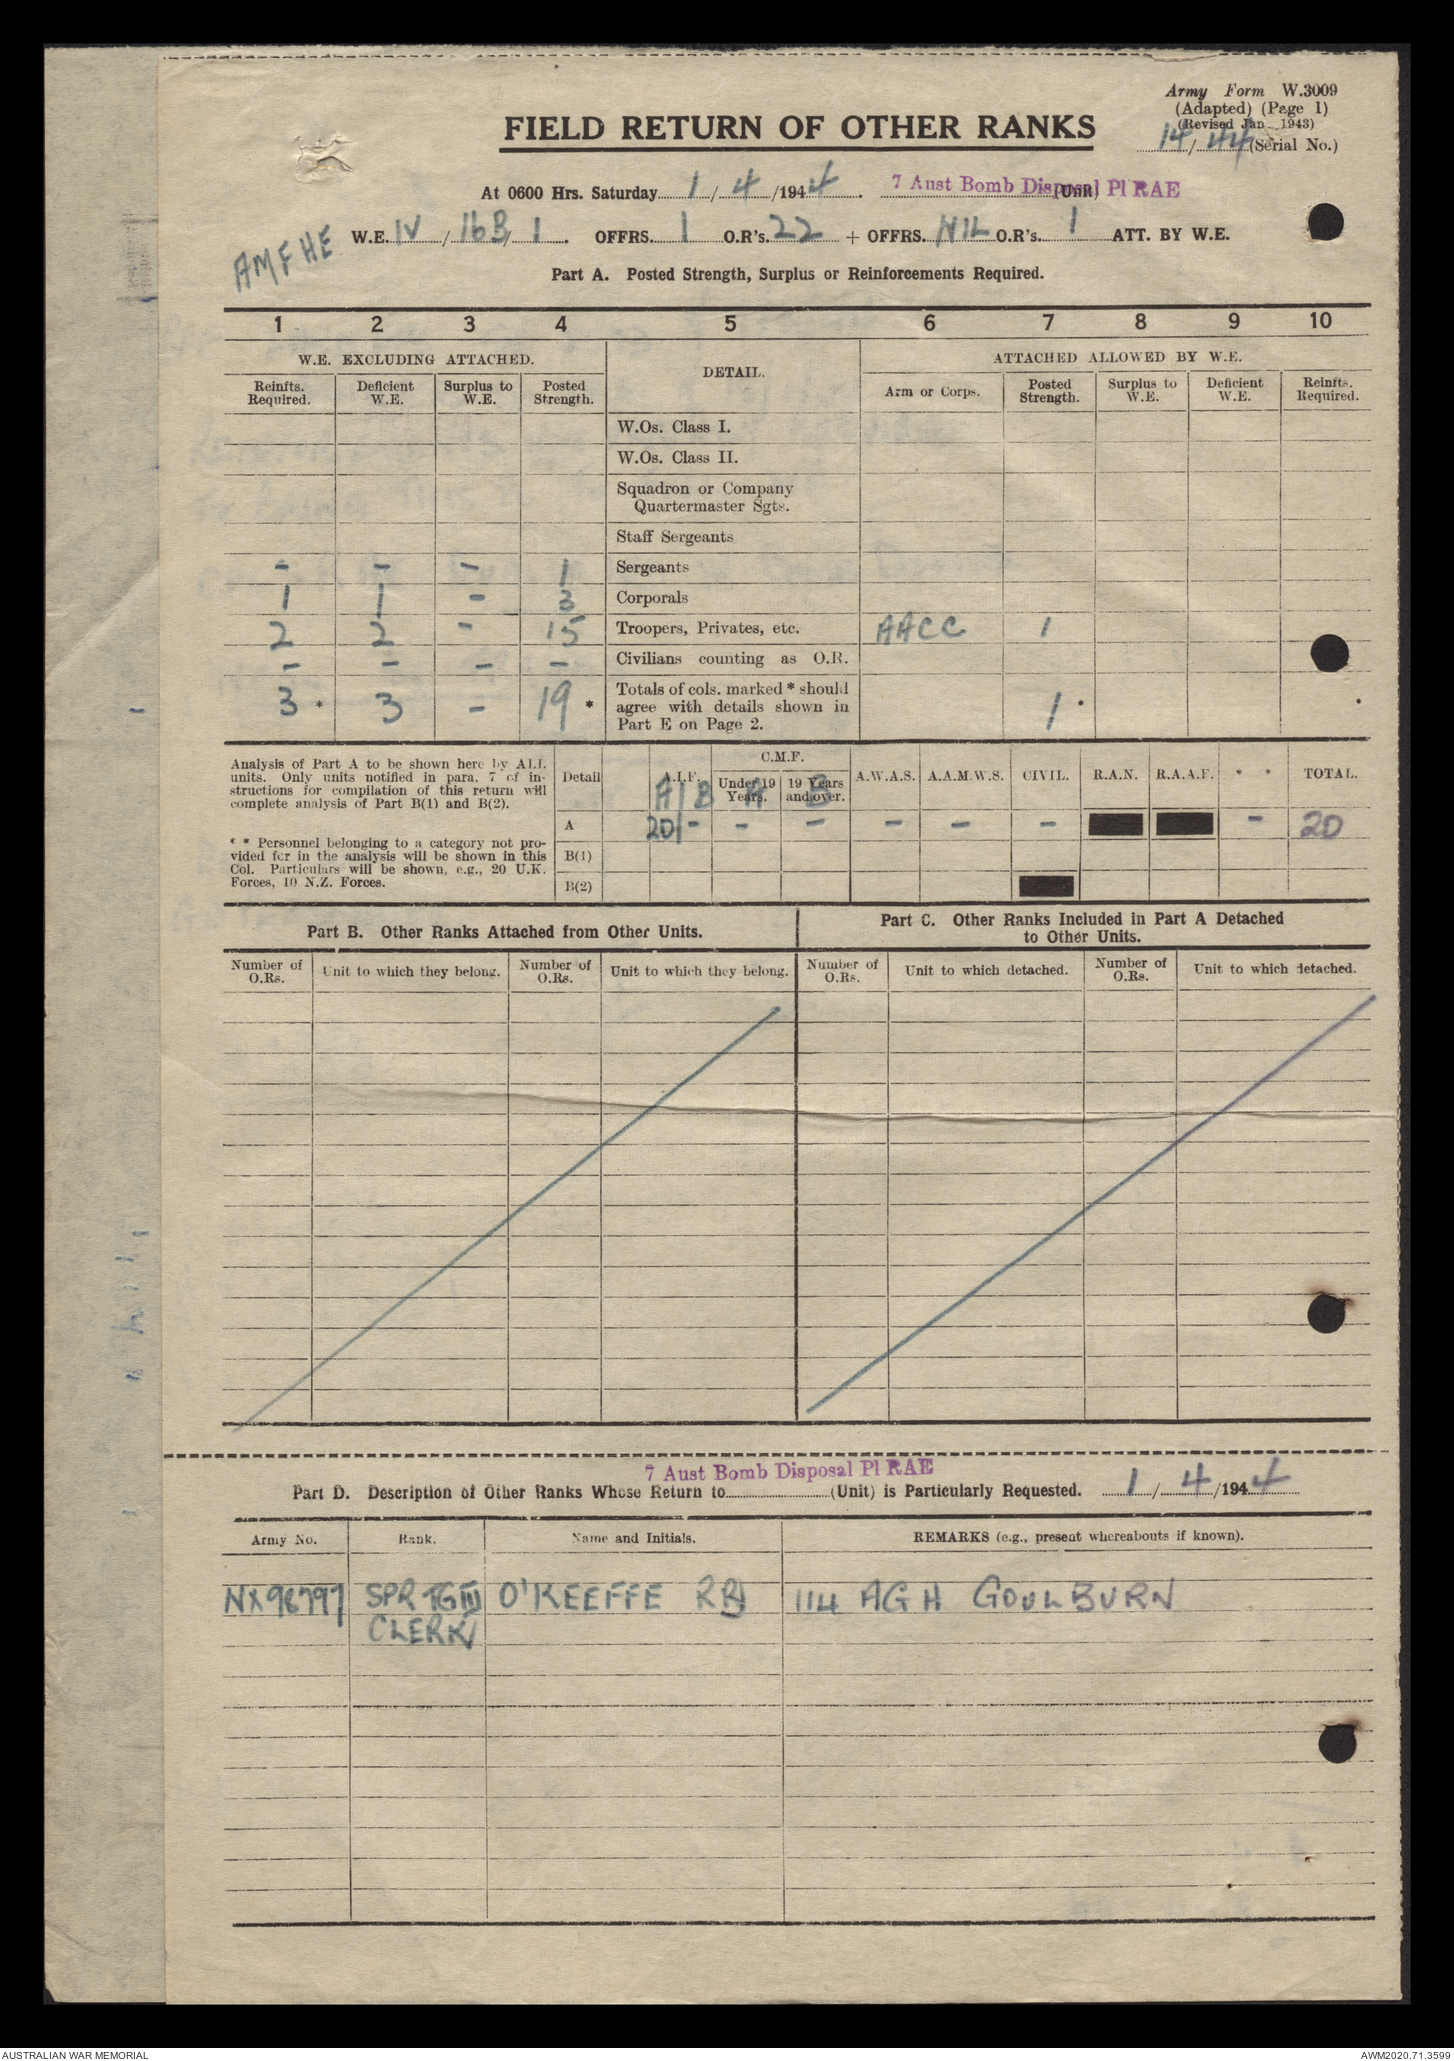 Army Form W.3009
(Adapted) (Page 1)
(Revised Jan. 1943)
14/44 (Serial No.)
FIELD RETURN OF OTHER RANKS
At 0600 Hrs. Saturday 1/4/1944. 7 Aust Bomb Disposal Pl RAE (Unit)
AMFHE
W.E. IV/16B/1. OFFRS. 1 O.R's. 22 + OFFRS. NIL O.R's. 1 ATT. BY W.E.
Part A. Posted Strength, Surplus or Reinforcements Required.
1 2 3 4 5 6 7 8 9 10
W.E. EXCLUDING ATTACHED. DETAIL. ATTACHED ALLOWED BY W.E.
Reinfts. Required. Deficient W.E. Surplus to W.E. Posted Strength. Arm or Corps. Posted Strength. Surplus to W.E. Deficient W.E. Reinfts. Required.
W.Os. Class I.
W.Os. Class II.
Squadron or Company
Quartermaster Sgts.
Staff Sergeants
- - - 1 Sergeants
1 1 - 3 Corporals
2 2 - 15 Troopers, Privates, etc. AACC 1
- - - - Civilians counting as O.R.
3 * 3 - 19 * Totals of cols. marked * should
agree with details shown in
Part E on Page 2. 1
Analysis of Part A to be shown here by ALL
units. Only units notified in para. 7 of in-
structions for compilation of this return will
complete analysis of Part B(1) and B(2).
* * Personnel belonging to a category not pro-
vided for in the analysis will be shown in this
Col. Particulars will be shown, e.g., 20 U.K.
Forces, 10 N.Z. Forces.
Detail A.I.F. C.M.F. A.W.A.S. A.A.M.W.S. CIVIL. R.A.N. R.A.A.F. * * TOTAL.
Under 19 Years. 19 Years and over.
A B A B
A 20 - - - - - - - 20
B(1)
B(2)
Part B. Other Ranks Attached from Other Units.
Part C. Other Ranks Included in Part A Detached
to Other Units.
Number of O.Rs. Unit to which they belong. Number of O.Rs. Unit to which they belong. Number of O.Rs. Unit to which detached. Number of O.Rs. Unit to which detached.
7 Aust Bomb Disposal Pl RAE
Part D. Description of Other Ranks Whose Return to (Unit) is Particularly Requested. 1/4/1944
Army No. Rank. Name and Initials. REMARKS (e.g., present whereabouts if known).
NX98797 SPR TG III O'KEEFFE RB 114 AGH GOULBURN
CLERK
AUSTRALIAN WAR MEMORIAL
AWM2020.71.3599